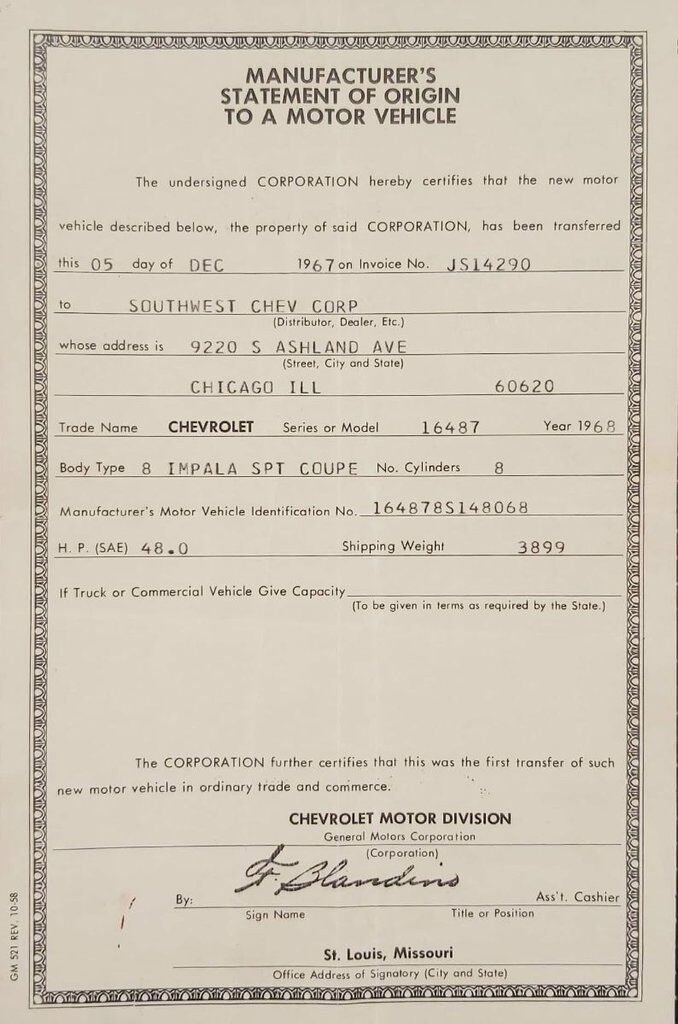 MANUFACTURER'S
STATEMENT OF ORIGIN
TO A MOTOR VEHICLE
The undersigned CORPORATION hereby certifies that the new motor
vehicle described below, the property of said CORPORATION, has been transferred
this 05 day of DEC 1967 on Invoice No. JS14290
to SOUTHWEST CHEV CORP
(Distributor, Dealer, Etc.)
whose address is 9220 S ASHLAND AVE
(Street, City and State)
CHICAGO ILL 60620
Trade Name CHEVROLET Series or Model 16487 Year 1968
Body Type 8 IMPALA SPT COUPE No. Cylinders 8
Manufacturer's Motor Vehicle Identification No. 164878S148068
H. P. (SAE) 48.0 Shipping Weight 3899
If Truck or Commercial Vehicle Give Capacity
(To be given in terms as required by the State.)
The CORPORATION further certifies that this was the first transfer of such
new motor vehicle in ordinary trade and commerce.
CHEVROLET MOTOR DIVISION
General Motors Corporation
(Corporation)
F. Blandino
By: Ass't. Cashier
Sign Name Title or Position
St. Louis, Missouri
Office Address of Signatory (City and State)
GM 521 REV. 10-58